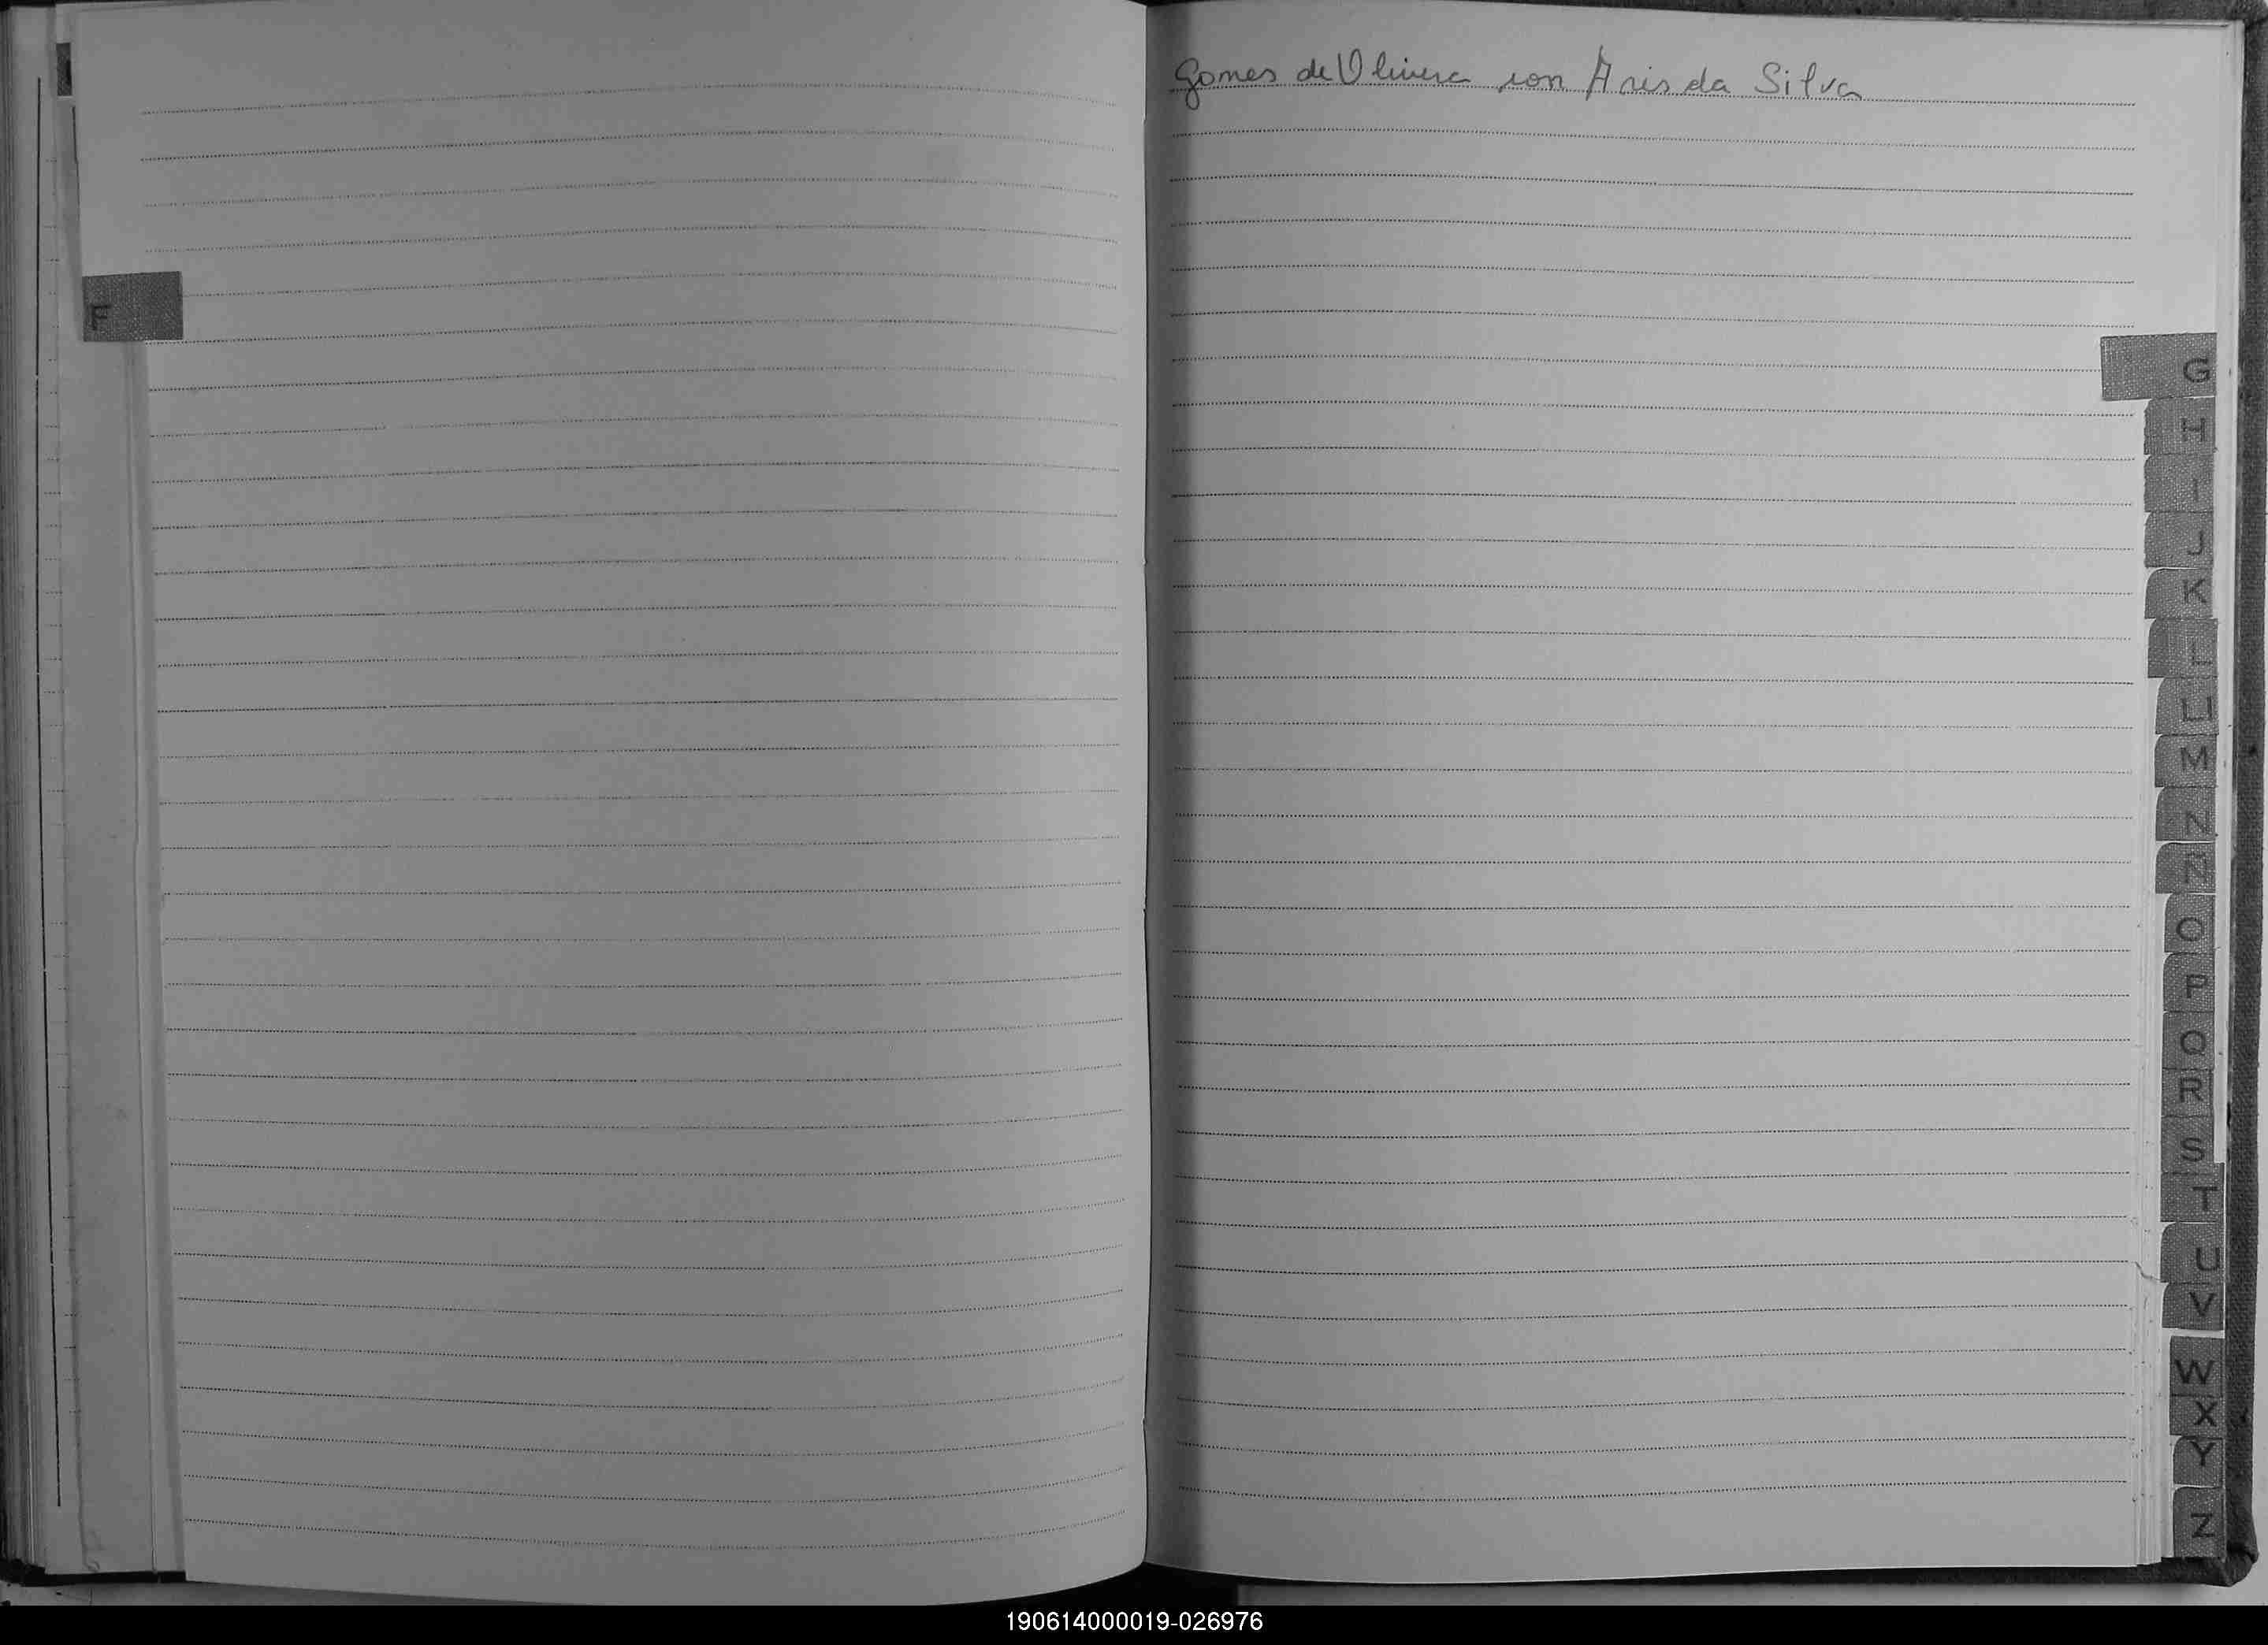 Gomes de Olivera con Aris da Silva
F
G
H
I
J
K
L
LL
M
N
Ñ
O
P
Q
R
S
T
U
V
W
X
Y
Z
190614000019-026976